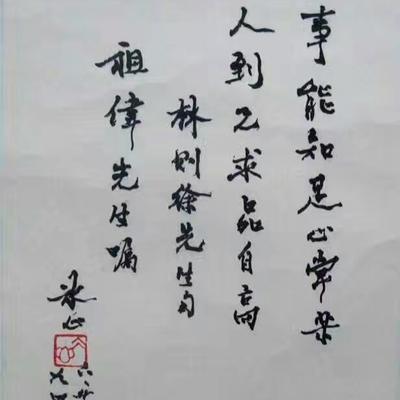 事能知足心常乐
人到无求品自高
林则徐先生句
祖偉先生嘱
冰心